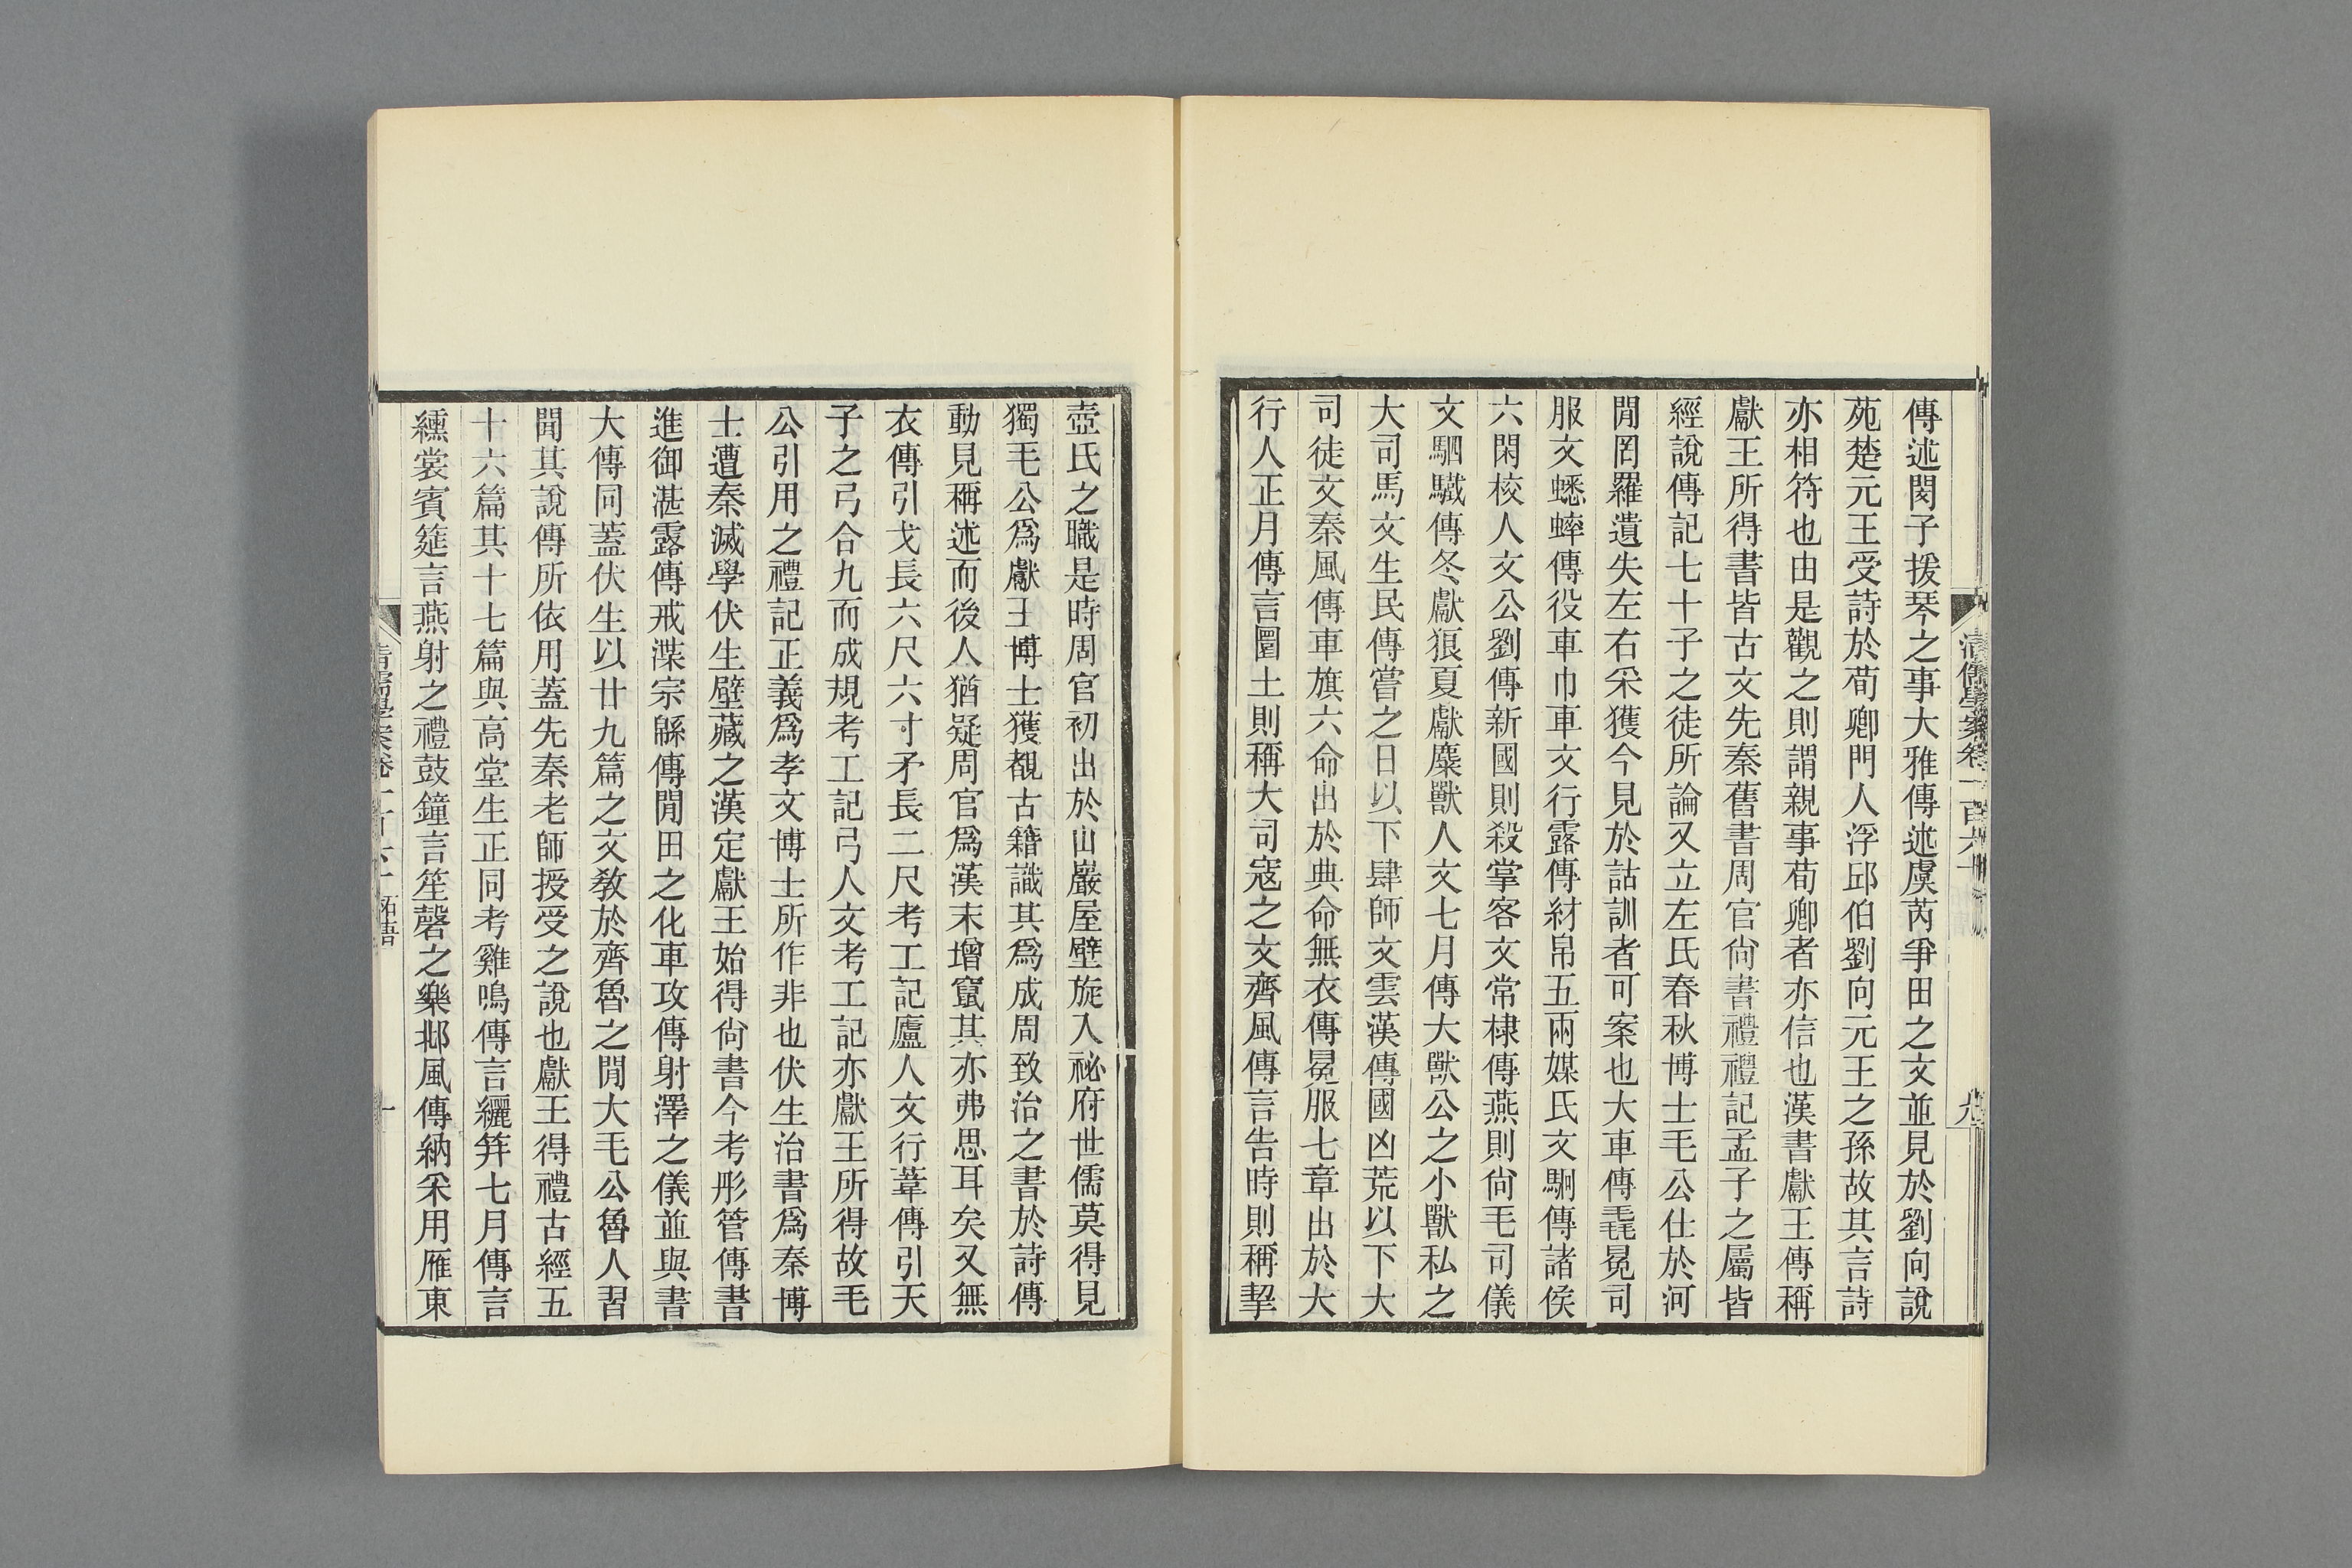 傳述閔子援琴之事大雅傳述虞芮爭田之文並見於劉向說
苑楚元王受詩於荀卿門人浮邱伯劉向元王之孫故其言詩
亦相符也由是觀之則謂親事荀卿者亦信也漢書獻王傳稱
獻王所得書皆古文先秦舊書周官尙書禮禮記孟子之屬皆
經說傳記七十子之徒所論又立左氏春秋博士毛公仕於河
閒罔羅遺失左右采獲今見於詁訓者可案也大車傳毳冕司
服文蟋蟀傳役車巾車文行露傳紂帛五兩媒氏文駉傳諸侯
六閑校人文公劉傳新國則殺掌客文常棣傳燕則尙毛司儀
文駟驖傳冬獻狼夏獻麋獸人文七月傳大獸公之小獸私之
大司馬文生民傳嘗之日以下肆師文雲漢傳國凶荒以下大
司徒文秦風傳車旗六命出於典命無衣傳冕服七章出於大
行人正月傳言圜土則稱大司寇之文齊風傳言告時則稱挈
清儒學案卷一百六十
九
壺氏之職是時周官初出於山巖屋壁旋入祕府世儒莫得見
獨毛公爲獻王博士獲覩古籍識其爲成周致治之書於詩傳
動見稱述而後人猶疑周官爲漢末增竄其亦弗思耳矣又無
衣傳引戈長六尺六寸矛長二尺考工記廬人文行葦傳引天
子之弓合九而成規考工記弓人文考工記亦獻王所得故毛
公引用之禮記正義爲孝文博士所作非也伏生治書爲秦博
士遭秦滅學伏生壁藏之漢定獻王始得尙書今考彤管傳書
進御湛露傳戒渫宗緜傳閒田之化車攻傳射澤之儀並與書
大傳同蓋伏生以廿九篇之文敎於齊魯之閒大毛公魯人習
聞其說傳所依用蓋先秦老師授受之說也獻王得禮古經五
十六篇其十七篇與高堂生正同考雞鳴傳言纚笄七月傳言
纁裳賓筵言燕射之禮鼓鐘言笙磬之樂邶風傳納采用雁東